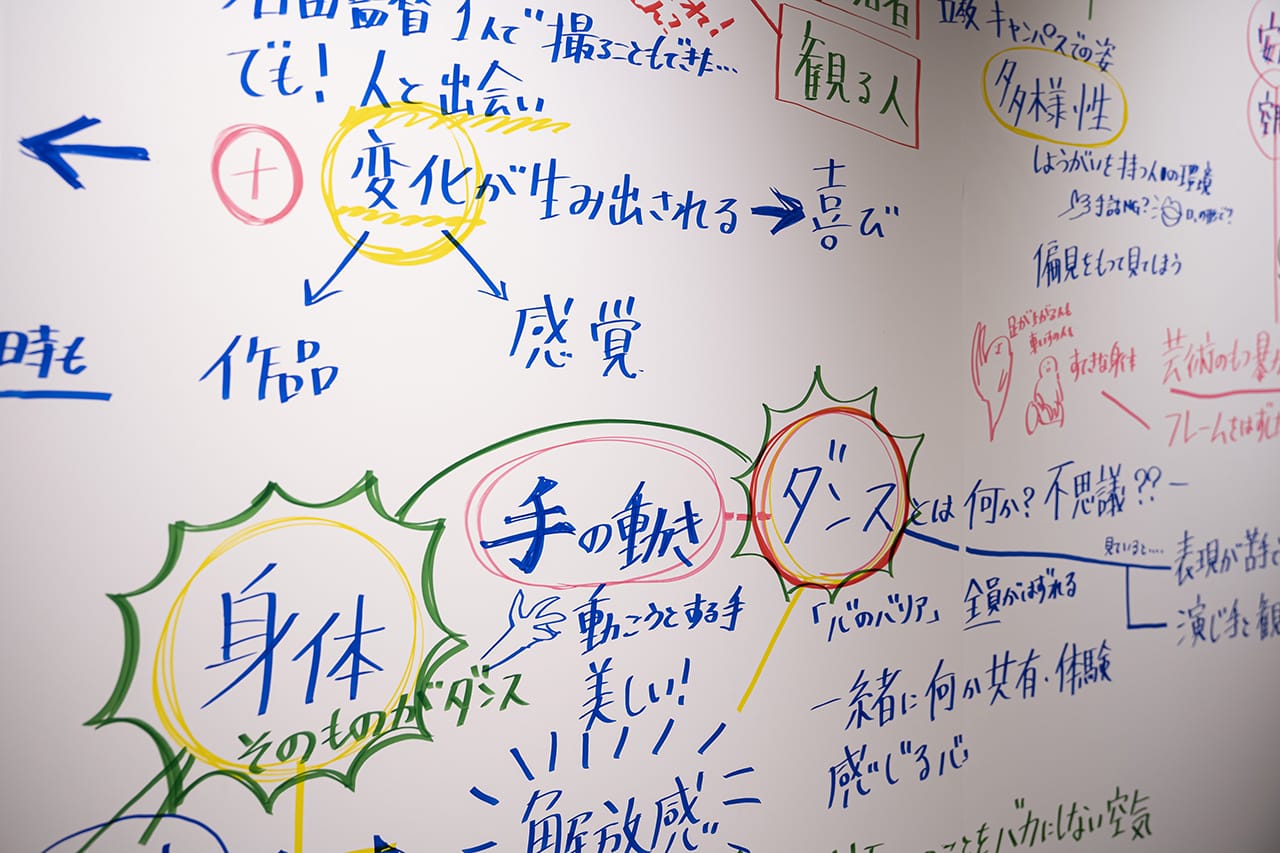 監督1人で撮ることもできた…
でも！人と出会い
＋
変化が生み出される
喜び
作品
感覚
時も
観る人
キャンパスでの姿
多様性
しょうがいを持つ人の環境
偏見をもって見てしまう
すてきな身体
芸術のもつ
フレームをはずし
手の動き
動こうとする手
美しい！
ダンスとは何か？不思議??
見ていると…
表現が苦手
演じ手と観
「心のバリア」全員がはずれる
一緒に何か共有・体験
感じる心
身体
そのものがダンス
解放感
ことをバカにしない空気